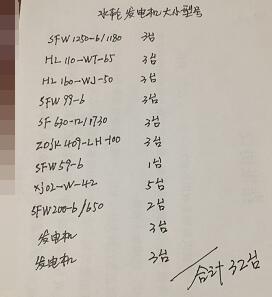 水轮发电机大小型号
SFW1250-6/1180 3台
HL110-WT-65 3台
HL160-WJ-50 3台
SFW99-6 3台
SF630-12/1730 3台
ZDJK409-LH-100 3台
SFW59-6 1台
XJ02-W-42 5台
SFW200-6/650 2台
发电机 3台
发电机 3台
合计32台